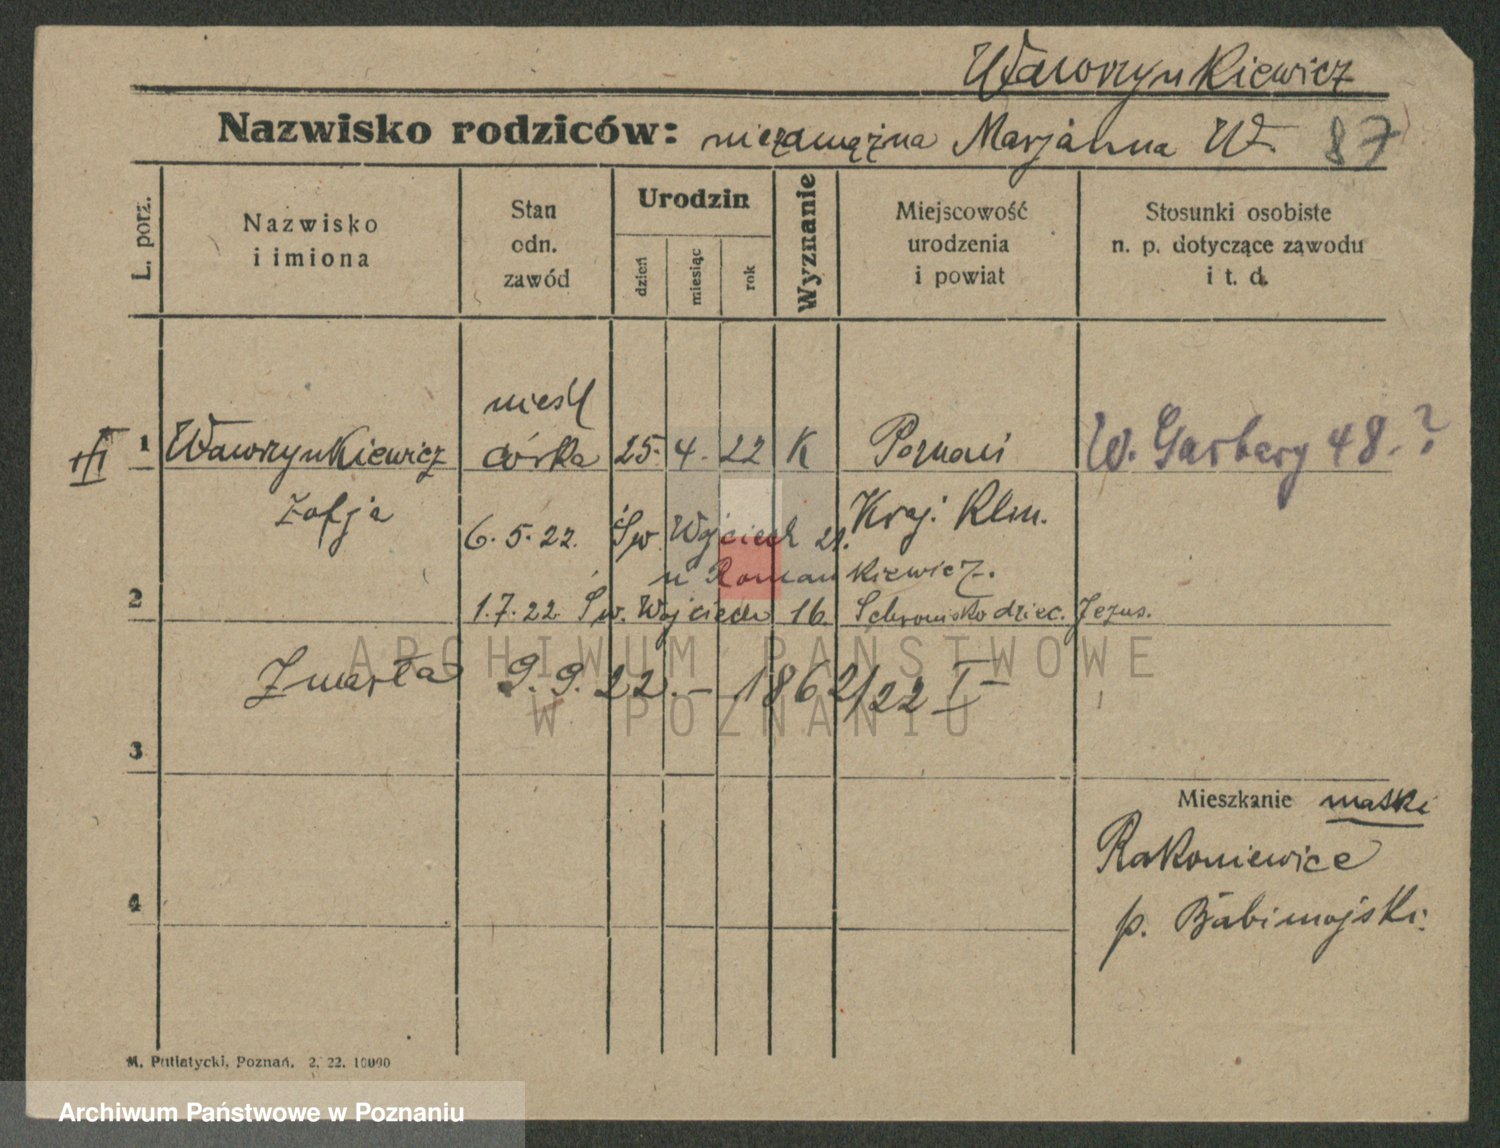 Wawrzynkiewicz
Nazwisko rodziców: niezamężna Marjanna W. 87
L. porz.
Nazwisko
i imiona
Stan
odn.
zawód
Urodzin
dzień
miesiąc
rok
Wyznanie
Miejscowość
urodzenia
i powiat
Stosunki osobiste
n. p. dotyczące zawodu
i t. d.
nieśl
III 1 Wawrzynkiewicz córka 25. 4. 22 K Poznań W. Garbary 48.?
Zofja
6. 5. 22. Św. Wojciech 21. Kraj. Klin.
u Romankiewicz.
2 1. 7. 22 Św. Wojciech 16. Schronisko dziec. Jezus.
Zmarła 9. 9. 22. – 1862/22 I
ARCHIWUM PAŃSTWOWE
W POZNANIU
3
Mieszkanie matki
Rakoniewice
4
p. Babimojski.
M. Putiatycki, Poznań. 2. 22. 10000
Archiwum Państwowe w Poznaniu